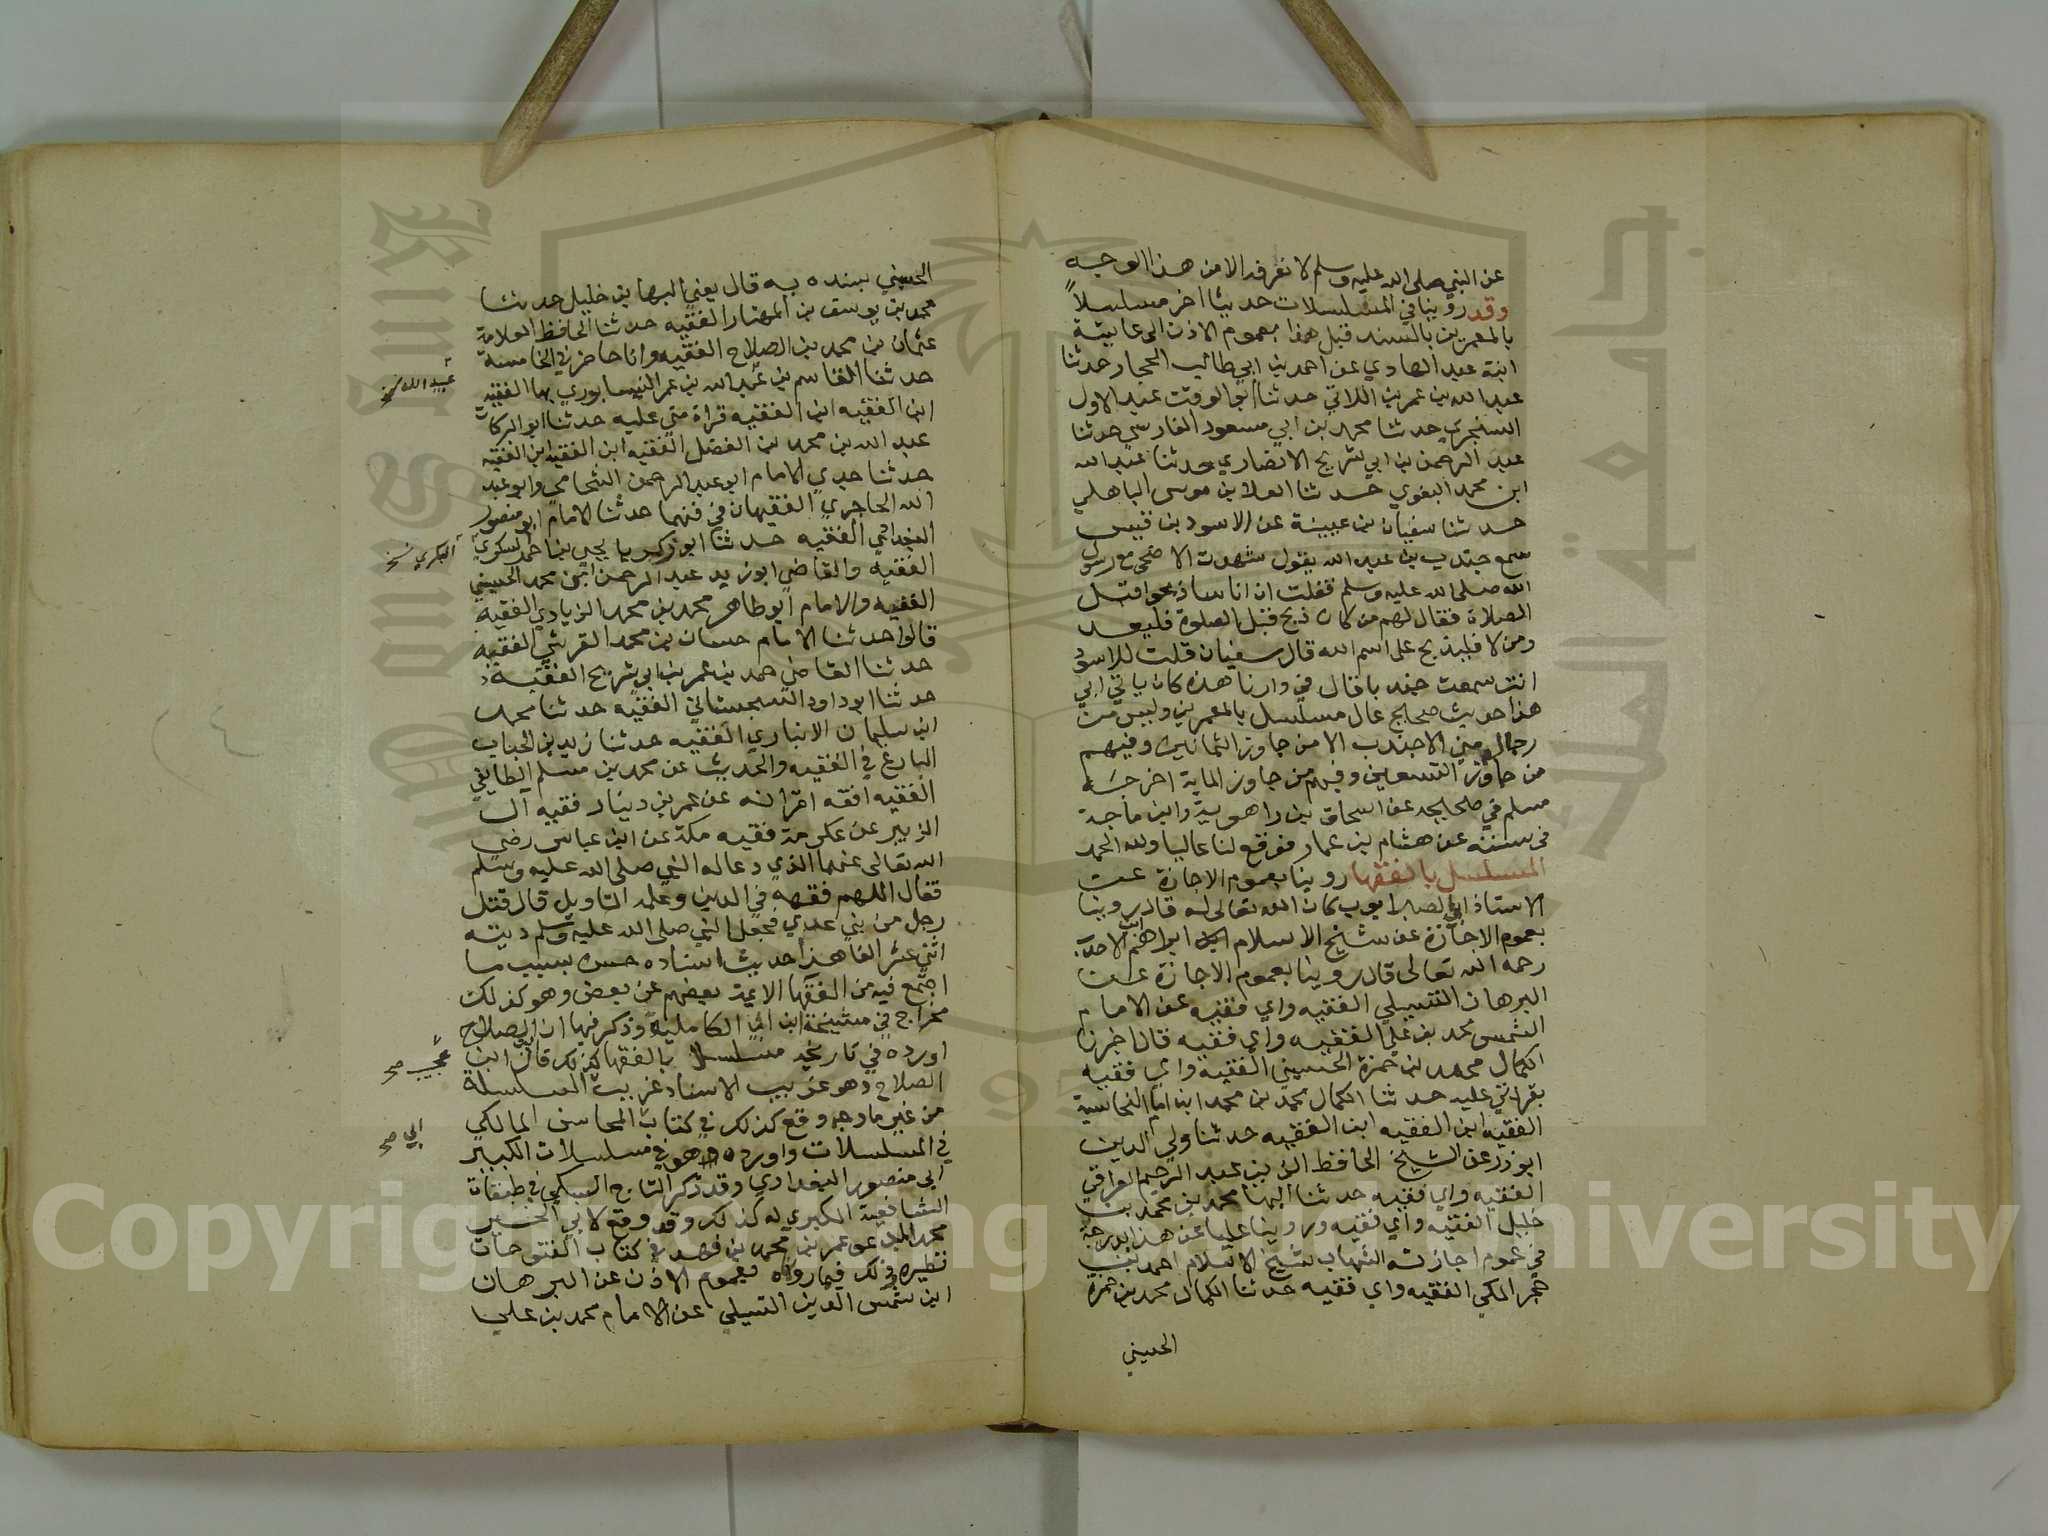 عن النبي صلى الله عليه وسلم لا نعرفه الا من هذا الوجه
وقد روينا في المسلسلات حديثا اخر مسلسلاً
بالمعمرين بالسند قبل هذا بعموم الاذن الى عايشة
ابنة عبد الهادي عن احمد بن ابي طالب الحجار حدثنا
عبد الله بن عمر بن اللاتي حدثنا ابو الوقت عبد الاول
السنجري حدثنا محمد بن ابي مسعود الفارسي حدثنا
عبد الرحمن بن ابي شريح الانصاري حدثنا عبد الله
ابن محمد البغوي حدثنا العلا بن موسى الباهلي
حدثنا سفيان بن عيينة عن الاسود بن قيس
سمع جندب بن عبد الله يقول شهدت الاضحى مع رسول
الله صلى الله عليه وسلم فقلت ان اناسا ذبحوا قبل
الصلاة فقال لهم من كان ذبح قبل الصلوة فليعد
ومن لا فليذبح على اسم الله قال سفيان قلت للاسود
انت سمعت جندبا قال في دارنا هذه كان ياتي ابي
هذا حديث صحيح عال مسلسل بالمعمرين وليس من
رجاله مني الا جندب الا من جاوز الثمانين وفيهم
من جاوز التسعين وفيهم من جاوز الماية اخرجه
مسلم في صحيحه عن اسحاق بن راهويه وابن ماجة
في سننه عن هشام بن عمار فوقع لنا عاليا ولله الحمد
المسلسل بالفقها روينا بعموم الاجازة عن
الاستاذ ابي الصبر ايوب كان الله تعالى له قال روينا
بعموم الاجازة عن شيخ الاسلام ابراهيم الاحدب
رحمه الله تعالى قال روينا بعموم الاجازة عن
البرهان التسيلي الفقيه واي فقيه عن الامام
الشمس محمد بن علي الفقيه واي فقيه قال اخبرنا
الكمال محمد بن حمزة الحسيني الفقيه واي فقيه
بقراتي عليه حدثنا الكمال محمد بن محمد ابن امام النحاسية
الفقيه ابن الفقيه ابن الفقيه حدثنا ولي الدين
ابو زرعة الشيخ الحافظ الزين عبد الرحيم العراقي
الفقيه واي فقيه حدثنا البها محمد بن محمد بن
خليل الفقيه واي فقيه وروينا عليا عن هذا بدرجة
في عموم اجازته الشهاب شيخ الاسلام احمد بن
حجر المكي الفقيه واي فقيه حدثنا الكمال محمد بن حمزة
الحسيني
الحسيني بسنده به قال يعني البها بن خليل حدثنا
محمد بن يوسف بن المهتار الفقيه حدثنا الحافظ العلامة
عثمان بن محمد بن الصلاح الفقيه وانا حاضر في الخامسة
حدثنا القاسم بن عبد الله بن عمر النيسابوري بها الفقيه
ابن الفقيه ابن الفقيه قراة مني عليه حدثنا ابو البركات
عبد الله بن محمد بن الفضل الفقيه ابن الفقيه ابن الفقيه
حدثنا جدي الامام ابو عبد الرحمن الشحامي وابو عبد
الله الحاجري الفقيهان في فنهما حدثنا الامام ابو منصور
البغدادي الفقيه حدثنا ابو زكريا يحيى بن احمد السكري
الفقيه والقاضي ابو زيد عبد الرحمن ابن محمد الحسيني
الفقيه والامام ابو طاهر محمد بن محمد الزيادي الفقيه
قالوا حدثنا الامام حسان بن محمد القرشي الفقيه
حدثنا القاضي حمد بن عمر بن ابي شريح الفقيه
حدثنا ابو داود السجستاني الفقيه حدثنا محمد
ابن سليمان الانباري الفقيه حدثنا زيد بن الحباب
البارع في الفقيه والحديث عن محمد بن مسلم الطايفي
الفقيه افقه اقرانه عن عمر بن دينار فقيه آل
الزبير عن عكرمة فقيه مكة عن ابن عباس رضي
الله تعالى عنهما الذي دعا له النبي صلى الله عليه وسلم
فقال اللهم فقهه في الدين وعلمه التاويل قال قتل
رجل من بني عدي فجعل النبي صلى الله عليه وسلم ديته
اثني عشر الفا هذا حديث اسناده حسن بسبب ما
اجتمع فيه من الفقها الايمة بعضهم عن بعض وهو كذلك
مخرج في مشيخة ابن امام الكاملية وذكر فيها ان ابن الصلاح
اورده في تاريخه مسلسلا بالفقها كذلك قال ابن
الصلاح وهو غريب الاسناد غريب السلسلة
من غير ما وجه وقع كذلك في كتاب المحاسن المالكي
في المسلسلات واورده وهو في مسلسلات الكبير
ابي منصور البغدادي وقد ذكر التاج السبكي في طبقات
الشافعية الكبرى له كذلك وقد وقع لابي الخير
محمد المدعو عمر بن محمد بن فهد في كتاب الفتوحات
نظيره ذلك فيما رواه بعموم الاذن عن البرهان
ابن شمس الدين التسيلي عن الامام محمد بن علي
عبيد الله نسخ
البكري نسخ
عجيب صح
ابي صح
Copyright © King Saud University
جامعة الملك سعود
King Saud